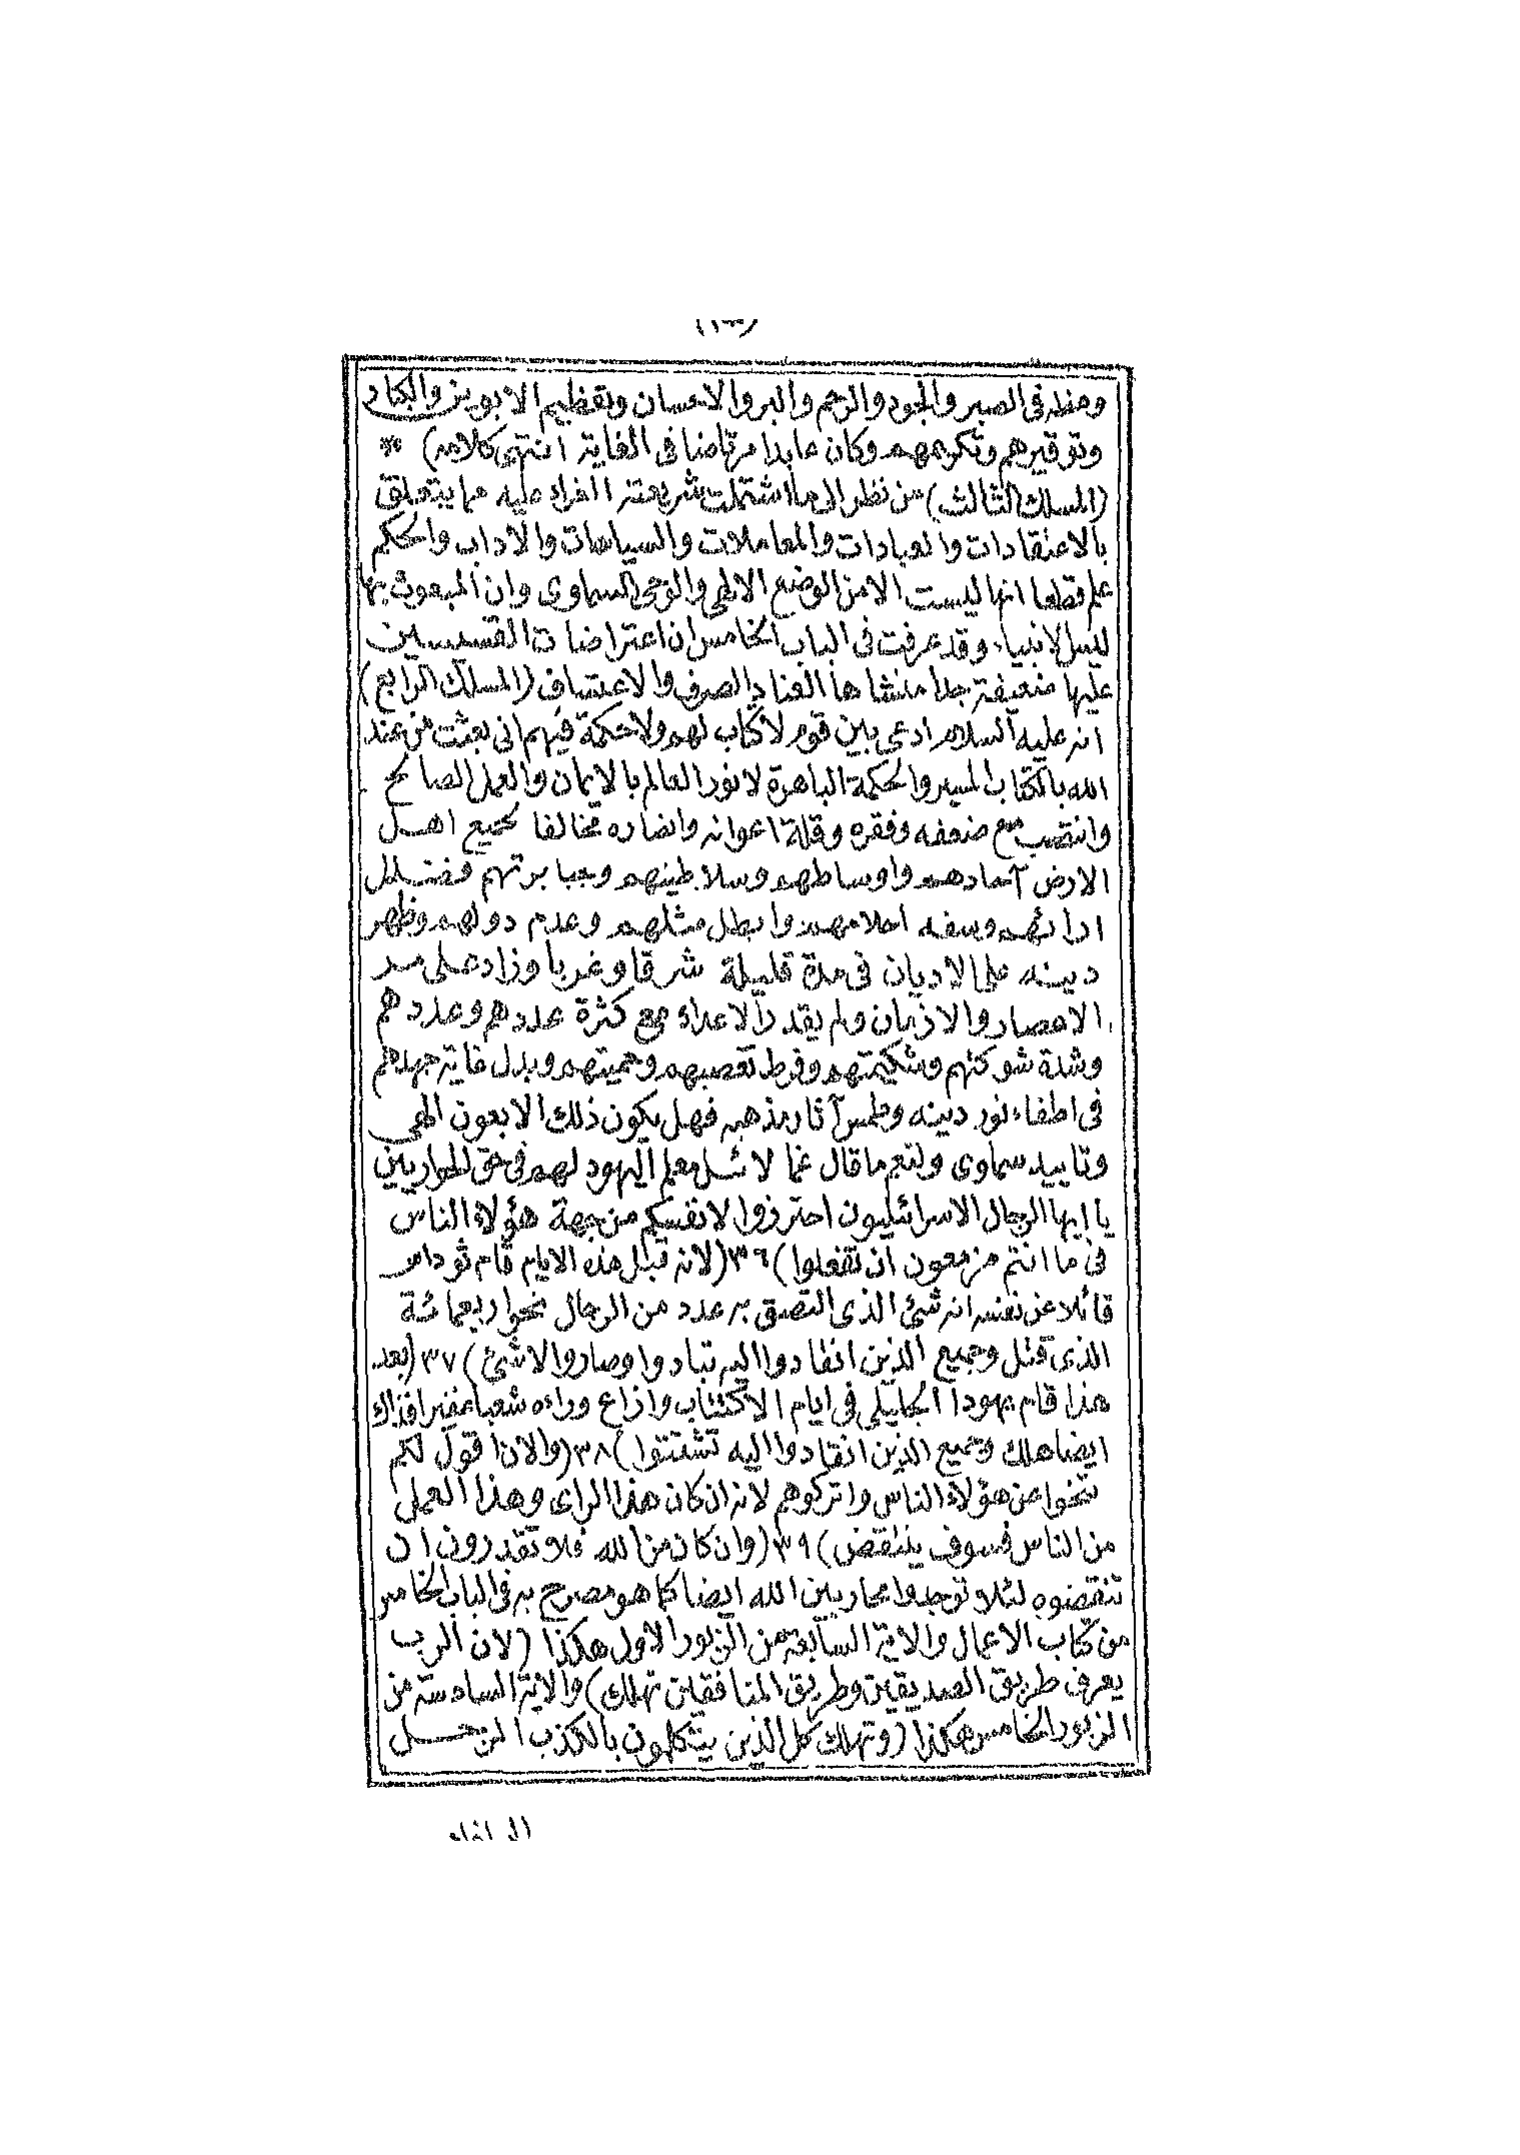 ومنه في الصبر والجود والرحم والبر والاحسان وتعظيم الابوين والكبار
وتوقيرهم وتكريمهم وكان عابدا مرتاضا في الغاية انتهى كلامه) **
(المسلك الثالث) من نظر الى ما اشتملت شريعته الغراء عليه مما يتعلق
بالاعتقادات والعبادات والمعاملات والسياسات والاداب والحكم
علم قطعا انها ليست الا من الوضع الالهي والوحي السماوي وان المبعوث بها
ليس الا نبيا، وقد عرفت في الباب الخامس ان اعتراضات القسيسين
عليها ضعيفة جدا منشاها العناد الصرف والاعتساف (المسلك الرابع)
انه عليه السلام ادعى بين قوم لا كتاب لهم ولا حكمة فيهم اني بعثت من عند
الله بالكتاب المنير والحكمة الباهرة لانور العالم بالايمان والعمل الصالح
وانتصب مع ضعفه وفقره وقلة اعوانه وانصاره مخالفا لجميع اهل
الارض آحادهم واوساطهم وسلاطينهم وجبابرتهم فضلل
ارائهم وسفه احلامهم وابطل مللهم وهدم دولهم وظهر
دينه على الاديان في مدة قليلة شرقا وغربا وزاد على مر
الاعصار والازمان ولم يقدر الاعداء مع كثرة عددهم وعددهم
وشدة شوكتهم وشكيمتهم وفرط تعصبهم وحميتهم وبذل غاية جهدهم
في اطفاء نور دينه وطمس آثار مذهبه فهل يكون ذلك الا بعون الهي
وتاييد سماوي ولنعم ما قال غما لائيل معلم اليهود لهم في حق الحواريين
يا ايها الرجال الاسرائليون احترزوا لانفسكم من جهة هؤلاء الناس
في ما انتم مزمعون ان تفعلوا) ٣٦ (لانه قبل هذه الايام قام ثوداس
قائلا عن نفسه انه شئ الذي التصق به عدد من الرجال نحو اربعمائة
الذي قتل وجميع الذين انقادوا اليه تبادوا وصاروا لا شئ) ٣٧ (بعد
هذا قام يهودا الجليلي في ايام الاكتتاب وازاغ وراءه شعبا غفيرا فذاك
ايضا هلك وجميع الذين انقادوا اليه تشتتوا) ٣٨ (والان اقول لكم
تنحوا عن هؤلاء الناس واتركوهم لانه ان كان هذا الراى وهذا العمل
من الناس فسوف ينتقض) ٣٩ (وان كان من الله فلا تقدرون ان
تنقضوه لئلا توجدوا محاربين الله ايضا كما هو مصرح به في الباب الخامس
من كتاب الاعمال والاية السابعة من الزبور الاول هكذا (لان الرب
يعرف طريق الصديقين وطريق المنافقين تهلك) والاية السادسة من
الزبور الخامس هكذا (وتهلك كل الذين يتكلمون بالكذب الرجل